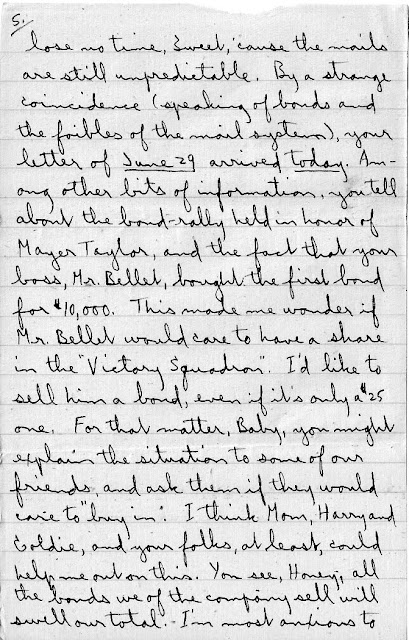 5.
lose no time, Sweet, 'cause the mails
are still unpredictable. By a strange
coincidence (speaking of bonds and
the foibles of the mail system), your
letter of June 29 arrived today. Am-
ong other bits of information, you tell
about the bond-rally held in honor of
Mayer Taylor, and the fact that your
boss, Mr. Bellet, bought the first bond
for $10,000. This made me wonder if
Mr. Bellet would care to have a share
in the "Victory Squadron". I'd like to
sell him a bond, even if it's only a $25
one. For that matter, Baby, you might
explain the situation to some of our
friends, and ask them if they would
care to "buy in". I think Mom, Harry and
Goldie, and your folks, at least, could
help me out on this. You see, Honey, all
the bonds we of the company sell will
swell our total. I'm most anxious to